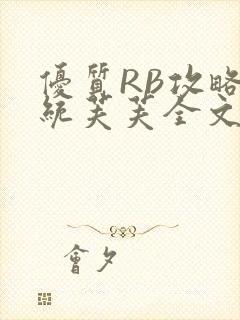 優質RB攻略
統芙芙全文
會夕